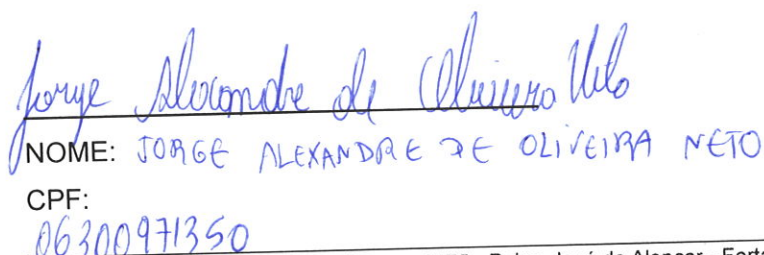 Jorge Alexandre de Oliveira Neto
NOME: JORGE ALEXANDRE DE OLIVEIRA NETO
CPF:
06300971350
José de Alencar - Forta